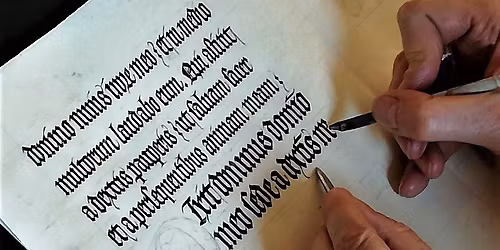 domino nimis in ore meo : et in medio
multorum laudabo eum. Qui astitit
a dextris pauperis : ut saluam facer
et a persequentibus animam meam :
Dixit dominus domino
meo sede a dextris m